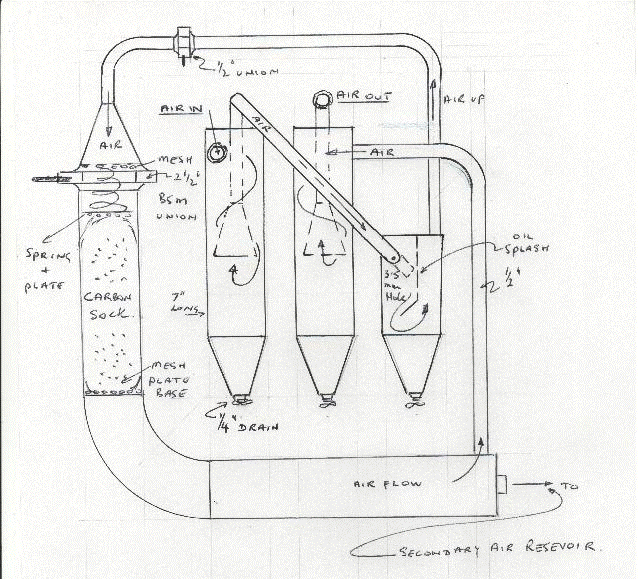 1/2" UNION
AIR IN
AIR OUT
AIR
AIR UP
AIR
MESH
2 1/2"
BSM
UNION
AIR
SPRING
+
PLATE
CARBON
SOCK.
OIL
SPLASH
3.5
mm
HOLE
1/2"
7"
LONG
MESH
PLATE
BASE
1/4" DRAIN
AIR FLOW
TO
SECONDARY AIR RESEVOIR.